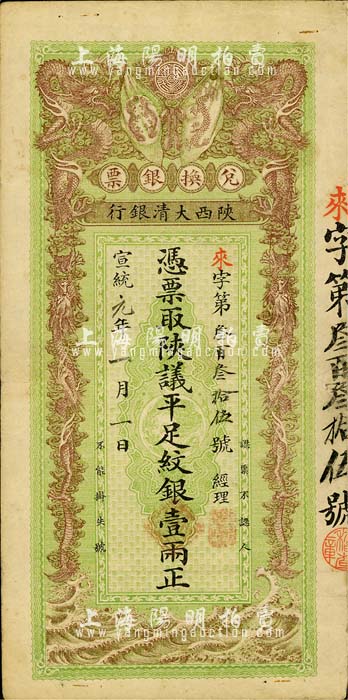 上海陽明拍賣
www.yangmingauction.com
兌換銀票
陝西大清銀行
來字第叁百叁拾伍號 經理
認票不認人
憑票取陝議平足紋銀壹兩正
宣統元年一月一日
不能掛失號
來字第叁百叁拾伍號
上海陽明拍賣
www.yangmingauction.com
上海陽明拍賣
www.yangmingauction.com